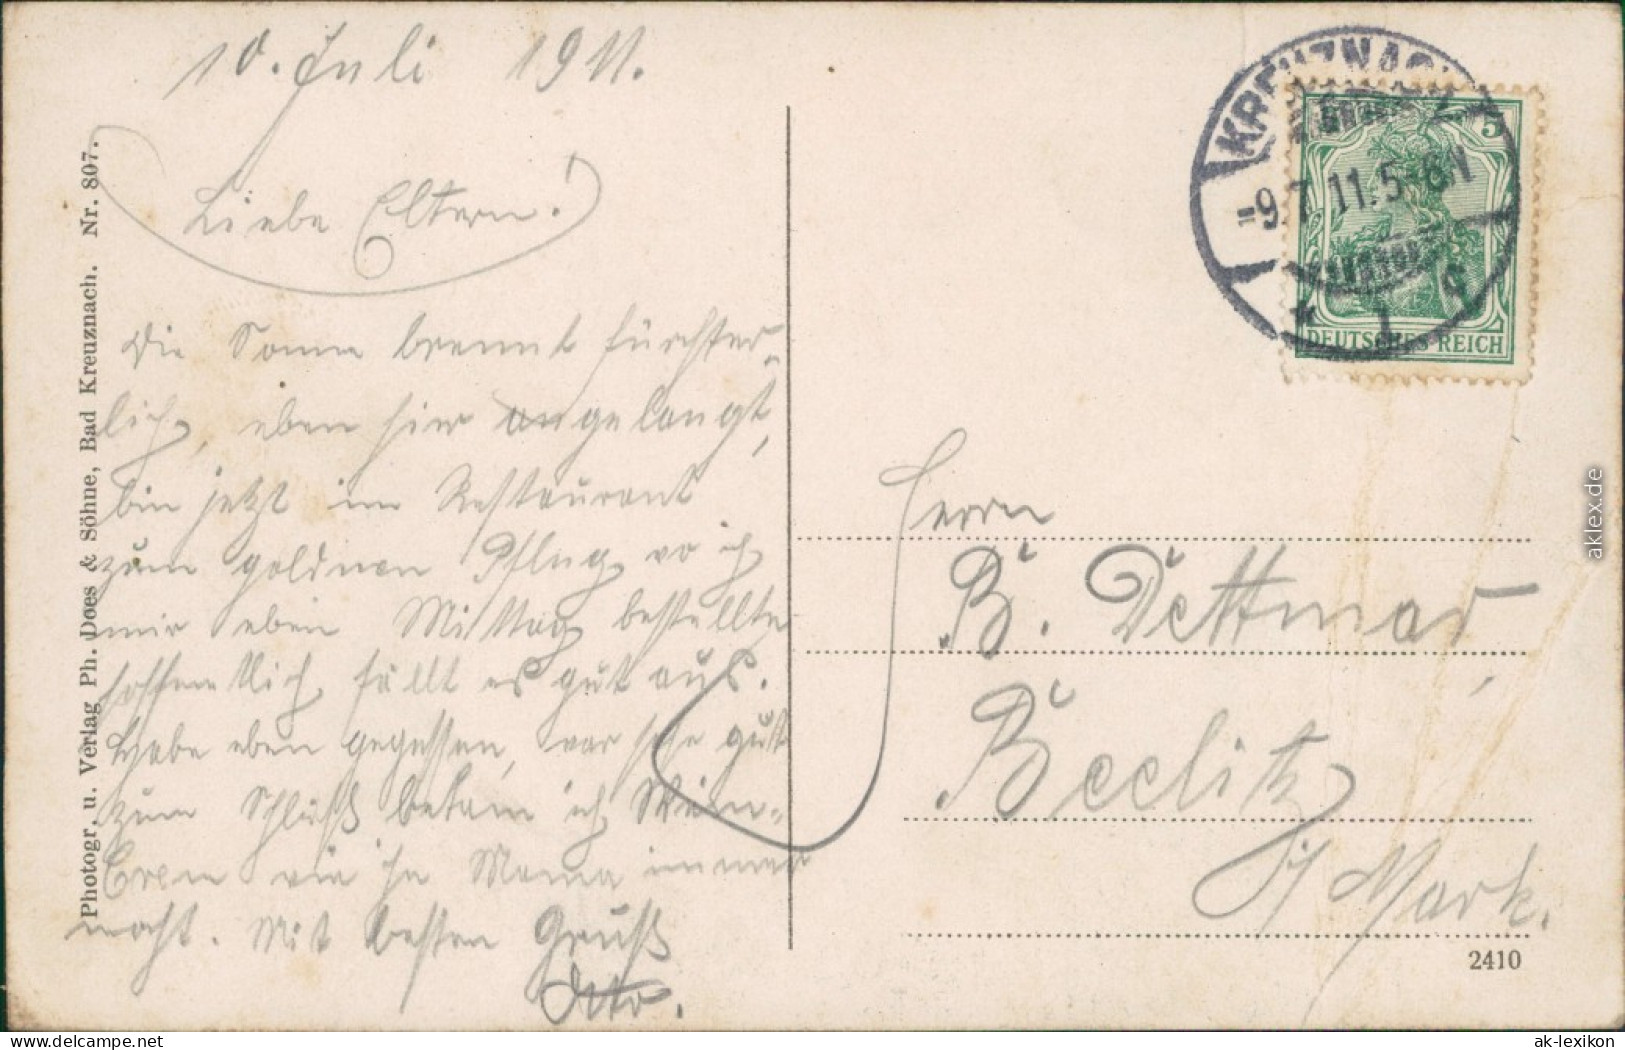 10. Juli 1911.
Liebe Eltern!
Die Sonne brennt fürchter-
lich, eben hier angelangt,
bin jetzt im Restaurant
zum goldnen Pflug, wo ich
mir eben Mittag bestellte
hoffentlich fällt es gut aus.
Habe eben gegessen, war sehr gut
zum Schluß bekam ich Wein-
Crem wie ihn Mama immer
macht. Mit besten Gruß
Otto.
Photogr. u. Verlag Ph. Does & Söhne, Bad Kreuznach. Nr. 807.
KREUZNACH
-9.7.11.5-6N
* 1 c
5
DEUTSCHES REICH
Herrn
B. Dettmar,
Beelitz
i/Mark.
2410
aklex.de
www.delcampe.net
ak-lexikon